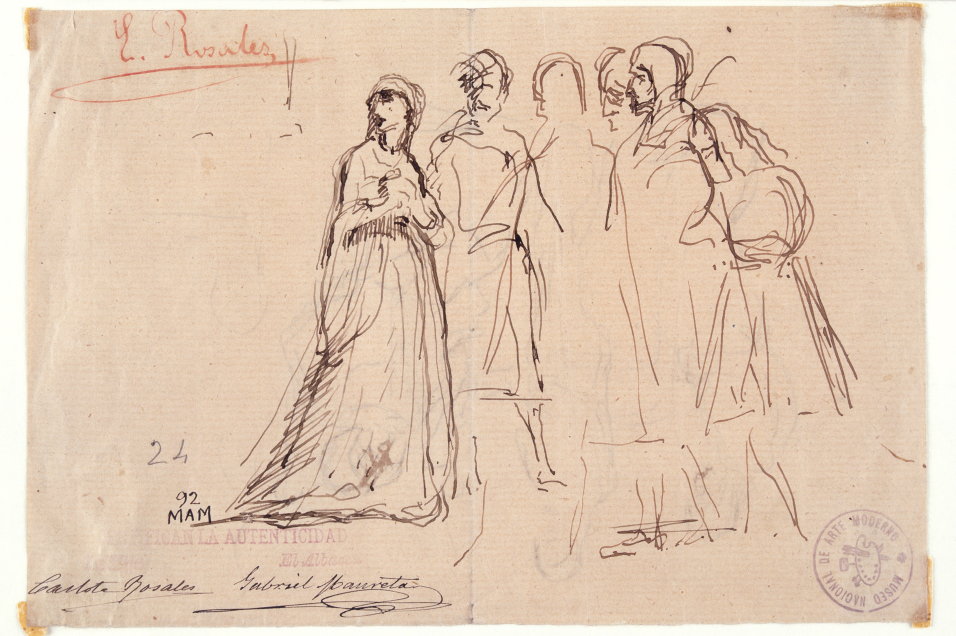 E. Rosales
24
92
MAM
CAN LA AUTENTICIDAD
El Alba
Carlota Rosales Gabriel Maureta
MUSEO NACIONAL DE ARTE MODERNO